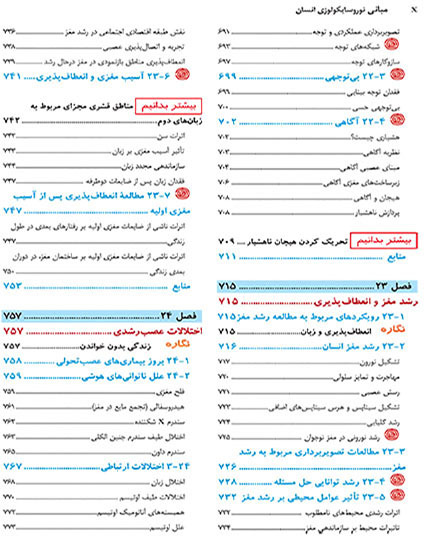 X مبانی نوروسایکولوژی انسان
تصویربرداری عملکردی و توجه ۶۹۱
شبکه‌های توجه ۶۹۳
سازوکارهای توجه ۶۹۷
۲۲-۳ بی‌توجهی ۶۹۹
فقدان توجه بینایی ۶۹۹
بی‌توجهی حسی ۷۰۰
۲۲-۴ آگاهی ۷۰۲
هشیاری چیست؟ ۷۰۲
نظریه آگاهی ۷۰۳
مبنای عصبی آگاهی ۷۰۴
زیرساخت‌های مغزی آگاهی ۷۰۶
هیجان و آگاهی ۷۰۸
پردازش ناهشیار ۷۰۸
بیشتر بدانیم تحریک کردن هیجان ناهشیار ۷۰۹
منابع ۷۱۱
فصل ۲۳ ۷۱۵
رشد مغز و انعطاف‌پذیری ۷۱۵
۲۳-۱ رویکردهای مربوط به مطالعه رشد مغز ۷۱۵
نگاره انعطاف‌پذیری و زبان ۷۱۵
۲۳-۲ رشد مغز انسان ۷۱۶
تشکیل نورون ۷۱۷
مهاجرت و تمایز سلولی ۷۲۰
رسش عصبی ۷۲۱
تشکیل سیناپس و هرس سیناپس‌های اضافی ۷۲۲
رشد گلیایی ۷۲۴
رشد نورونی در مغز نوجوان ۷۲۵
۲۳-۳ مطالعات تصویربرداری مربوط به رشد
مغز ۷۲۶
۲۳-۴ رشد توانایی حل مسئله ۷۲۸
۲۳-۵ تأثیر عوامل محیطی بر رشد مغز ۷۳۲
اثرات رشدی محیط‌های نامطلوب ۷۳۳
تاثیرات محیط بر سازماندهی مغز ۷۳۴
نقش طبقه اقتصادی اجتماعی در رشد مغز ۷۳۶
تجربه و اتصال‌پذیری عصبی ۷۳۸
انعطاف‌پذیری مناطق بازنمودی در مغز درحال رشد ۷۳۹
۲۳-۶ آسیب مغزی و انعطاف‌پذیری ۷۴۱
بیشتر بدانیم مناطق قشری مجزای مربوط به
زبان‌های دوم ۷۴۲
اثرات سن ۷۴۲
تأثیر آسیب مغزی بر زبان ۷۴۳
سازماندهی مجدد زبان ۷۴۴
فقدان زبان پس از ضایعات دوطرفه ۷۴۷
۲۳-۷ مطالعهٔ انعطاف‌پذیری پس از آسیب
مغزی اولیه ۷۴۷
اثرات ناشی از ضایعات مغزی اولیه بر رفتارهای بعدی در طول
زندگی ۷۴۷
اثرات ناشی از ضایعات مغزی اولیه بر ساختمان مغز، در دوران
بعدی زندگی ۷۵۰
منابع ۷۵۳
فصل ۲۴ ۷۵۷
اختلالات عصب‌رشدی ۷۵۷
نگاره زندگی بدون خواندن ۷۵۷
۲۴-۱ بروز بیماری‌های عصب‌تحولی ۷۵۸
۲۴-۲ علل ناتوانی‌های هوشی ۷۵۹
فلج مغزی ۷۵۹
هیدروسفالی (تجمع مایع در مغز) ۷۶۱
سندرم X شکننده ۷۶۲
اختلال طیف سندرم جنین الکلی ۷۶۳
سندرم داون ۷۶۵
۲۴-۳ اختلالات ارتباطی ۷۶۷
اختلال زبان ۷۶۸
اختلالات طیف اوتیسم ۷۷۰
همبسته‌های آناتومیک اوتیسم ۷۷۲
علل اوتیسم ۷۷۳